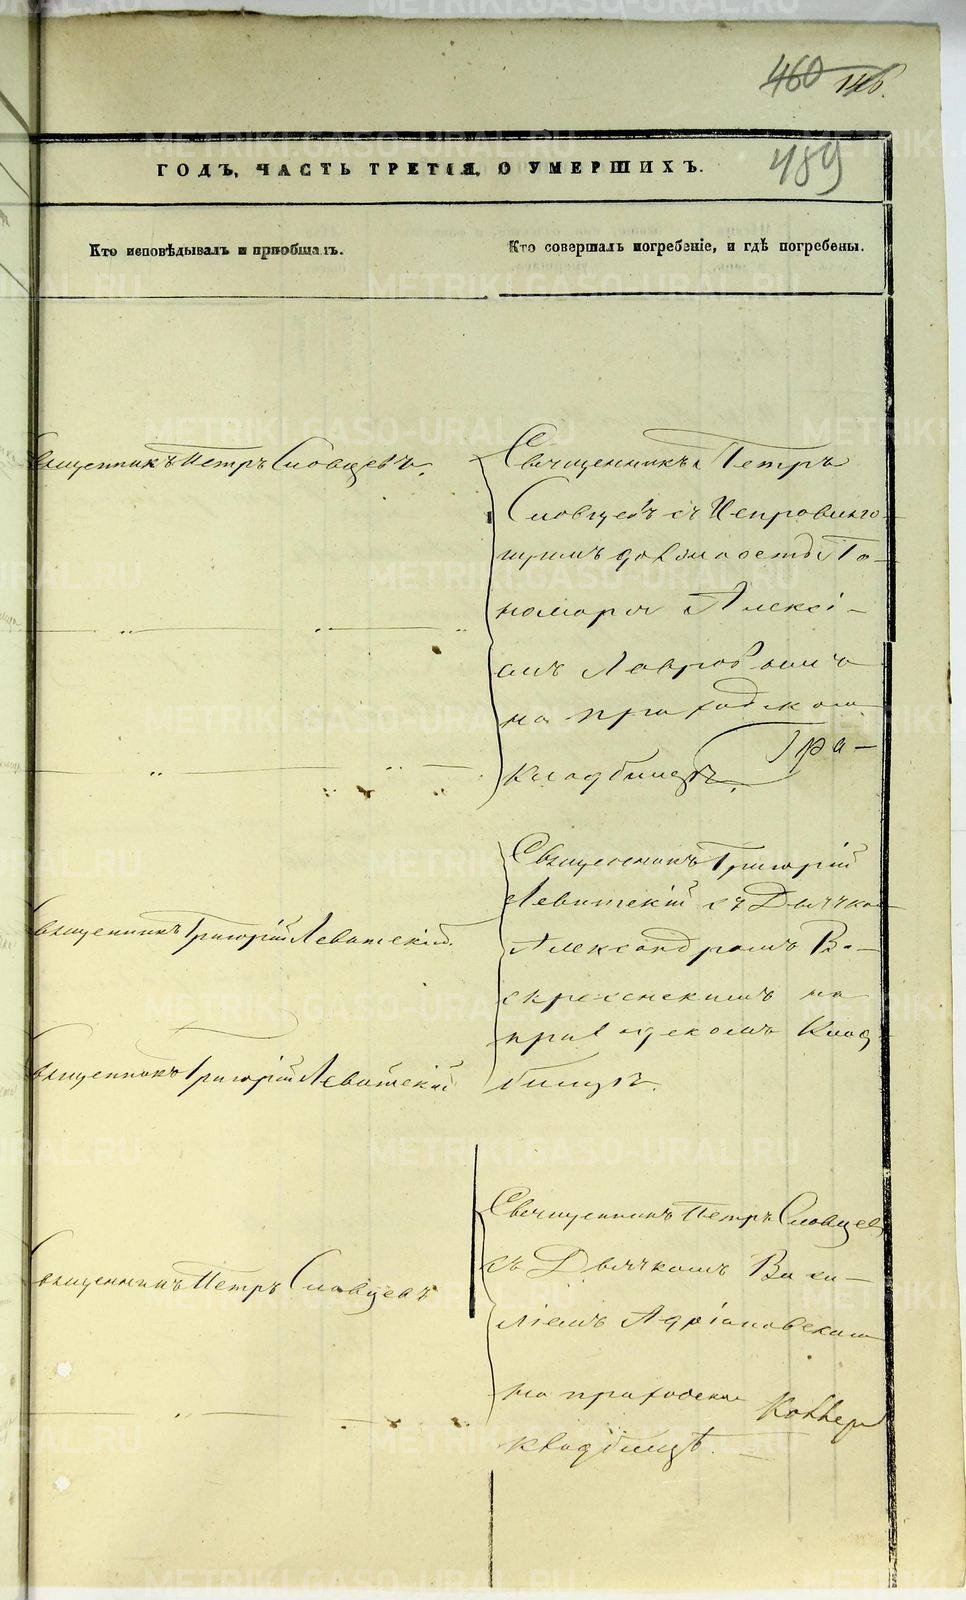 460 146.
489
ГОДЪ, ЧАСТЬ ТРЕТІЯ, О УМЕРШИХЪ.
Кто исповѣдывалъ и пріобщалъ.
Кто совершалъ погребеніе, и гдѣ погребены.
Священникъ Петръ Словцевъ.
Священникъ Петръ
Словцевъ съ
должность По-
номаря Алексі-
емъ Лавровымъ
на приходскомъ
Кладбищѣ.
Священникъ Григорій Левитскій.
Священникъ Григорій Левитскій
Священникъ Григорій
Левитскій съ Дьячко
Александромъ Во-
скресенскимъ на
приходскомъ Клад
бищѣ.
Священникъ Петръ Словцевъ
Священникъ Петръ Словцев
съ Дьячкомъ Васи-
ліемъ Адріановскимъ
на приходском
кладбищѣ.
METRIKI.GASO-URAL.RU